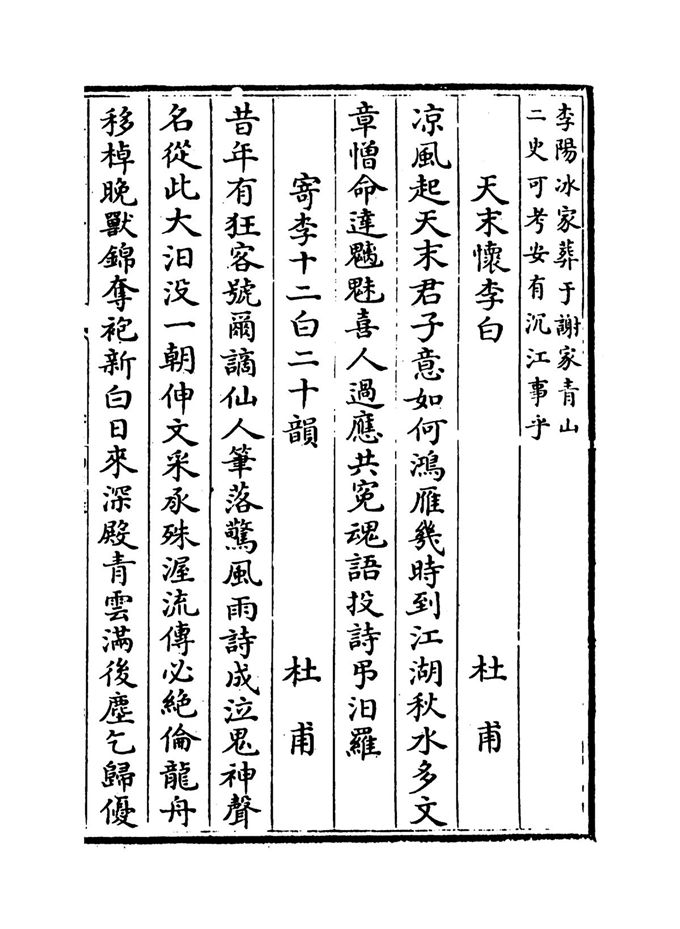 李陽冰家葬于謝家青山
二史可考安有沉江事乎
天末懷李白 杜甫
凉風起天末君子意如何鴻雁幾時到江湖秋水多文
章憎命達魑魅喜人過應共寃魂語投詩弔汨羅
寄李十二白二十韻 杜甫
昔年有狂客號爾謫仙人筆落驚風雨詩成泣鬼神聲
名從此大汩没一朝伸文采承殊渥流傳必絶倫龍舟
移棹晚獸錦奪袍新白日來深殿青雲滿後塵乞歸優